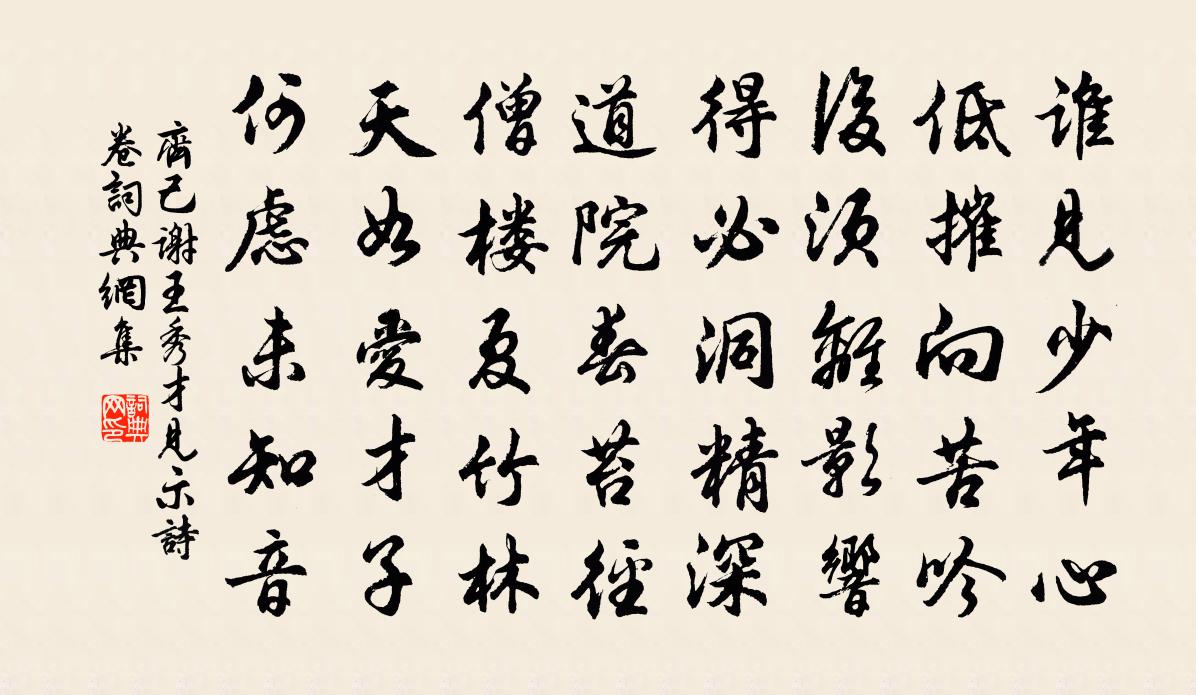 誰見少年心
低摧向苦吟
後須離影響
得必洞精深
道院春苔徑
僧楼夏竹林
天如愛才子
何慮未知音
齊己謝王秀才見示詩
卷詞典網集
詞典
网印